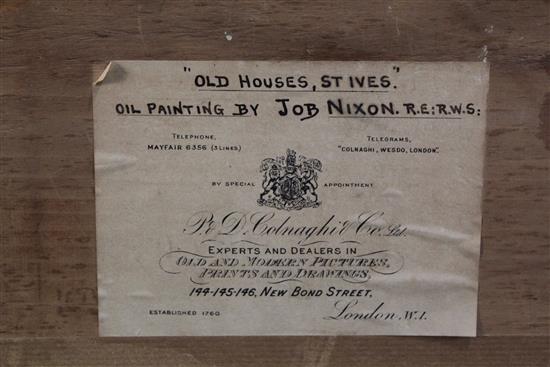 "OLD HOUSES, ST IVES."
OIL PAINTING BY JOB NIXON. R.E; R.W.S:
TELEPHONE, MAYFAIR 6356 (3 LINES)
TELEGRAMS, "COLNAGHI, WESDO, LONDON".
BY SPECIAL APPOINTMENT
P. & D. Colnaghi & Co. Ltd.
EXPERTS AND DEALERS IN
OLD AND MODERN PICTURES,
PRINTS AND DRAWINGS,
144-145-146, NEW BOND STREET,
ESTABLISHED 1760 London. W.1.